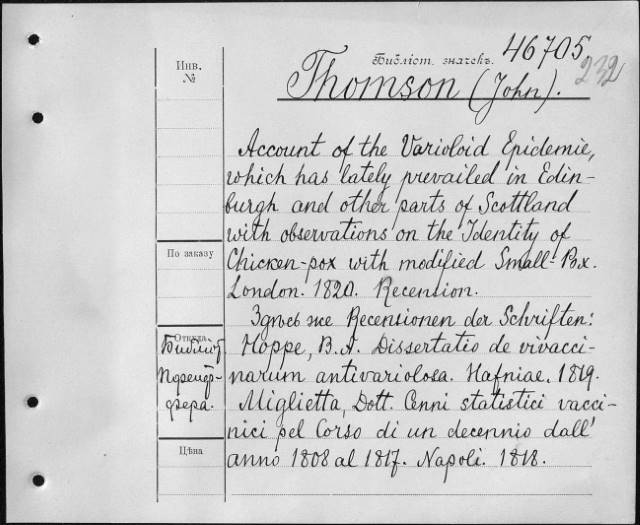 46705
Библіот. значекъ.
232
Инв.
№
Thomson (John).
Account of the Varioloid Epidemie,
which has lately prevailed in Edin-
burgh and other parts of Scottland
with observations on the Identity of
По заказу
Chicken-pox with modified Small-Pox.
London. 1820. Recention.
Здѣсь же Recensionen der Schriften:
Откуда
Библіот
Hoppe, B.A. Dissertatio de vivacci-
Пфейф-
narum antivariolosa. Hafniae. 1819.
фера.
Miglietta, Dott. Cenni statistici vacci-
nici pel Corso di un decennio dall'
Цѣна
anno 1808 al 1817. Napoli. 1818.